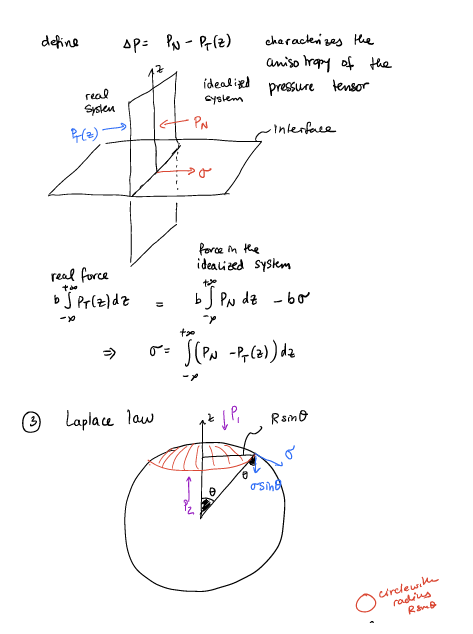 define ΔP = P_N − P_T(z) characterizes the
anisotropy of the
pressure tensor
z
real
system
idealized
system
P_T(z)
P_N
interface
σ
real force
force in the
idealized system
b ∫_{-∞}^{+∞} P_T(z) dz = b ∫_{-∞}^{+∞} P_N dz − bσ
⇒ σ = ∫_{-∞}^{+∞} (P_N − P_T(z)) dz
③ Laplace law
z
P_1
R sinθ
σ
θ
σ sinθ
P_2
θ
circle with
radius
R sinθ